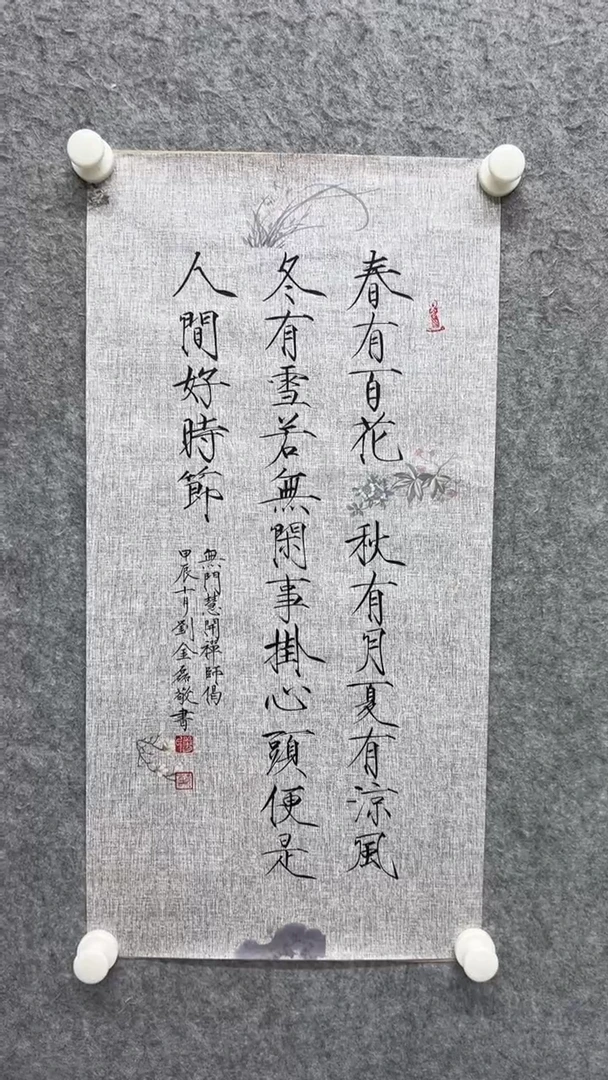 春有百花 秋有月夏有涼風
冬有雪若無閑事掛心頭便是
人間好時節
無門慧開禪師偈
甲辰十月劉金磊敬書